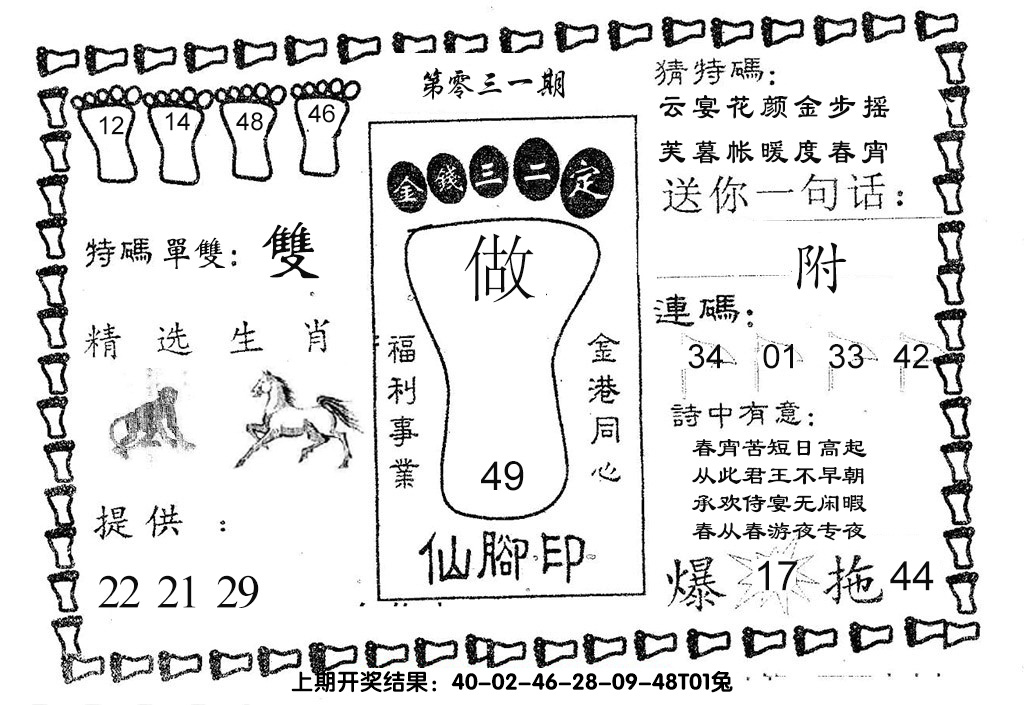 第零三一期
12 14 48 46
特碼單雙：雙
精选生肖
提供：
22 21 29
金錢三二定
做
福利事業
金港同心
49
仙腳印
猜特碼：
云宴花颜金步摇
芙暮帐暖度春宵
送你一句话：
附
連碼：
34 01 33 42
詩中有意：
春宵苦短日高起
从此君王不早朝
承欢侍宴无闲暇
春从春游夜专夜
爆 17 拖 44
上期开奖结果：40-02-46-28-09-48T01兔